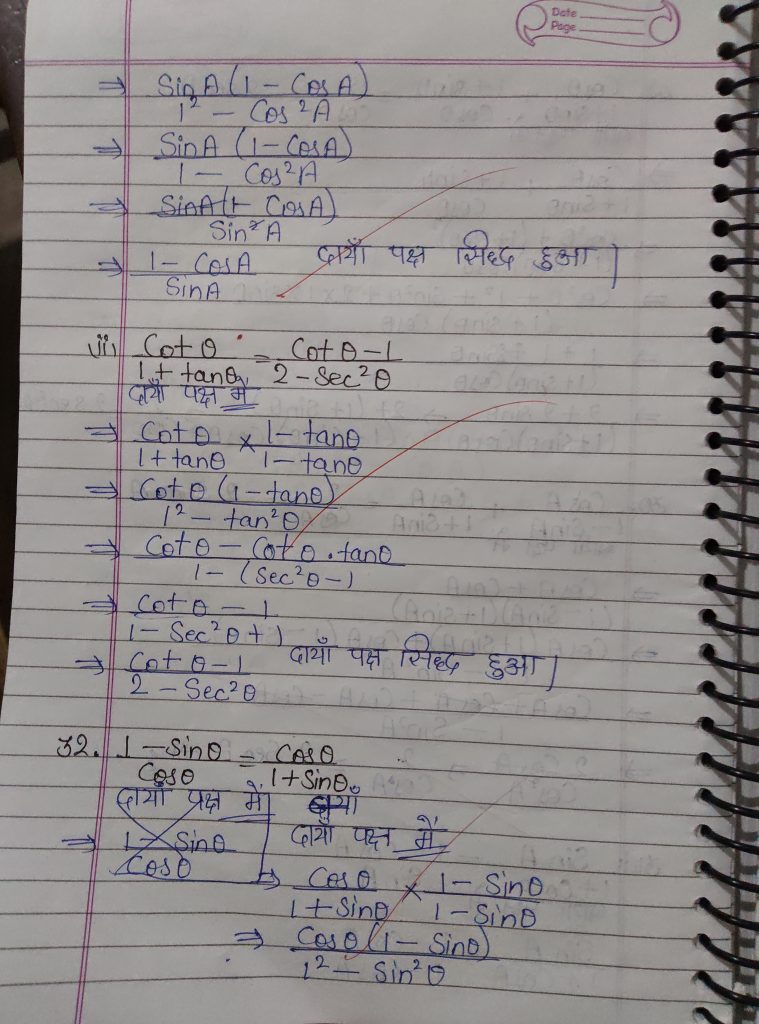 Date
Page
⇒ Sin A (1 - Cos A) / 1² - Cos²A
⇒ Sin A (1 - Cos A) / 1 - Cos²A
⇒ Sin A (1 - Cos A) / Sin²A
⇒ 1 - Cos A / Sin A दायाँ पक्ष सिद्ध हुआ |
ii) Cot θ / 1 + tan θ = Cot θ - 1 / 2 - Sec²θ
दायाँ पक्ष में
⇒ Cot θ / 1 + tan θ × 1 - tan θ / 1 - tan θ
⇒ Cot θ (1 - tan θ) / 1² - tan²θ
⇒ Cot θ - Cot θ . tan θ / 1 - (Sec²θ - 1)
⇒ Cot θ - 1 / 1 - Sec²θ + 1
⇒ Cot θ - 1 / 2 - Sec²θ दायाँ पक्ष सिद्ध हुआ |
32. 1 - Sin θ / Cos θ = Cos θ / 1 + Sin θ
दायाँ पक्ष में
⇒ 1 - Sin θ / Cos θ
दायाँ पक्ष में
⇒ Cos θ / 1 + Sin θ × 1 - Sin θ / 1 - Sin θ
⇒ Cos θ (1 - Sin θ) / 1² - Sin²θ